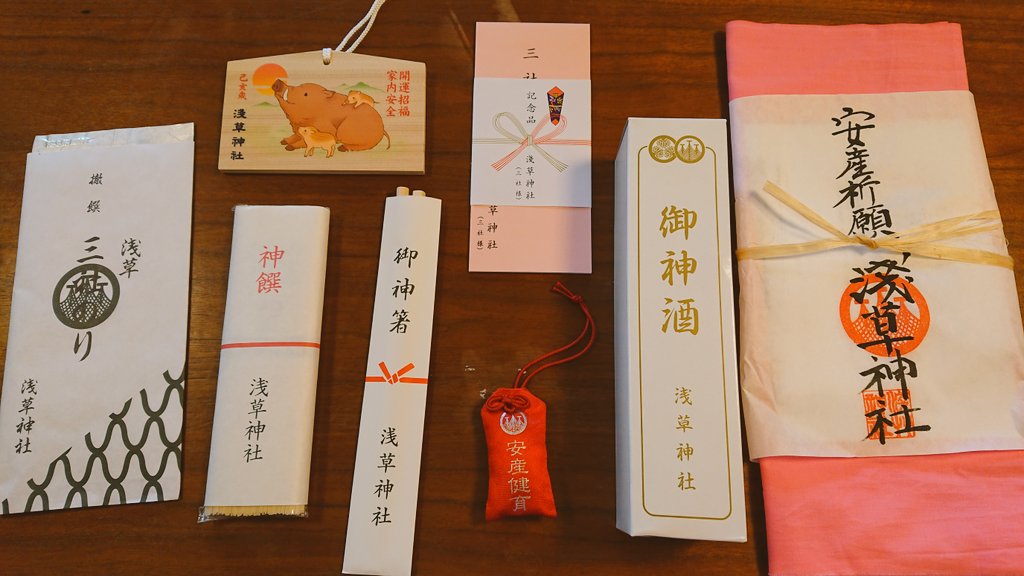 撤饌
浅草
三社のり
浅草神社
神饌
浅草神社
開運招福
家内安全
己亥歳
淺草神社
御神箸
浅草神社
三社
記念品
浅草神社
(三社様)
草神社
(三社様)
安産健育
御神酒
浅草神社
安産祈願
淺草神社